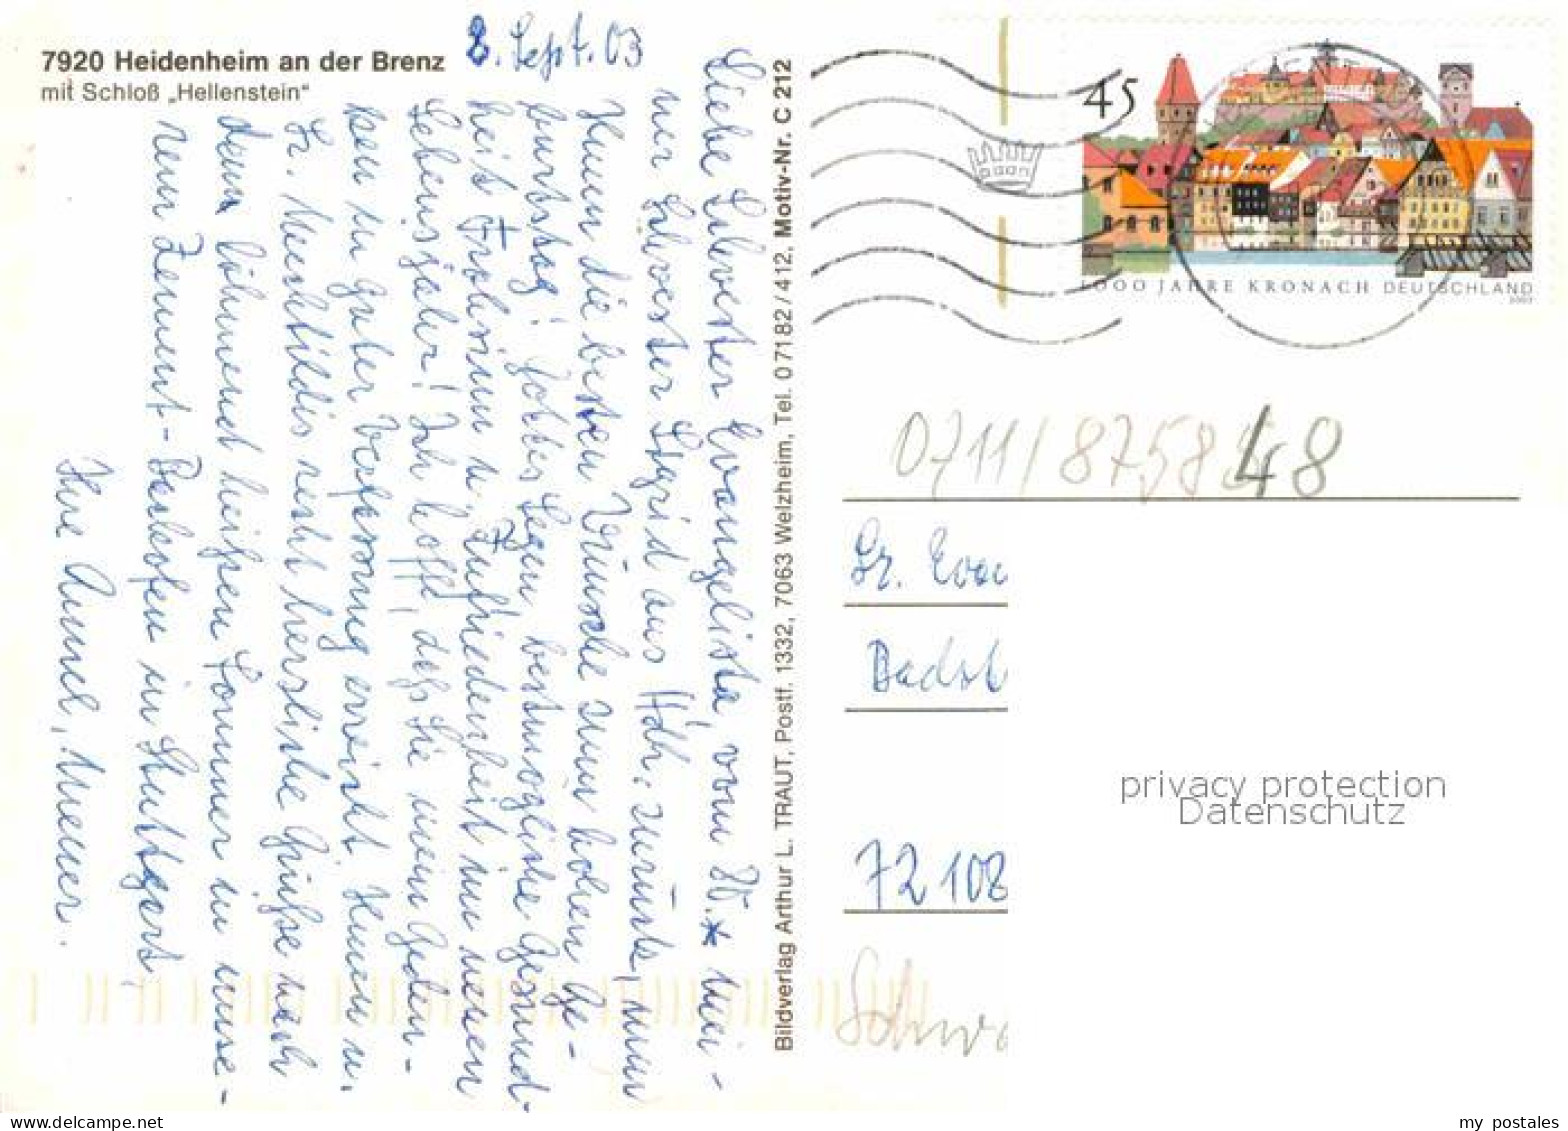 7920 Heidenheim an der Brenz
mit Schloß „Hellenstein"
8. Sept. 03
Liebe Schwester Evangelista, vom 80.* mei-
ner Schwester Sigrid aus Hdh. zurück, nun
Ihnen die besten Wünsche zum hohen Ge-
burtstag! Gottes Segen, bestmögliche Gesund-
heit, Frohsinn u. Zufriedenheit im neuen
Lebensjahr! Ich hoffe, daß Sie mein Geden-
ken in guter Verfassung erreicht. Ihnen u.
Sr. Mechtildis recht herzliche Grüße nach
dem lähmend heißen Sommer in unse-
rem Zement-Backofen in Stuttgart,
Ihre
Bildverlag Arthur L. TRAUT, Postf. 1332, 7063 Welzheim, Tel. 07182/412, Motiv-Nr. C 212
45
1000 JAHRE KRONACH DEUTSCHLAND
2003
0711/875848
Sr. Evan
72108
Schwa
privacy protection
Datenschutz
my postales